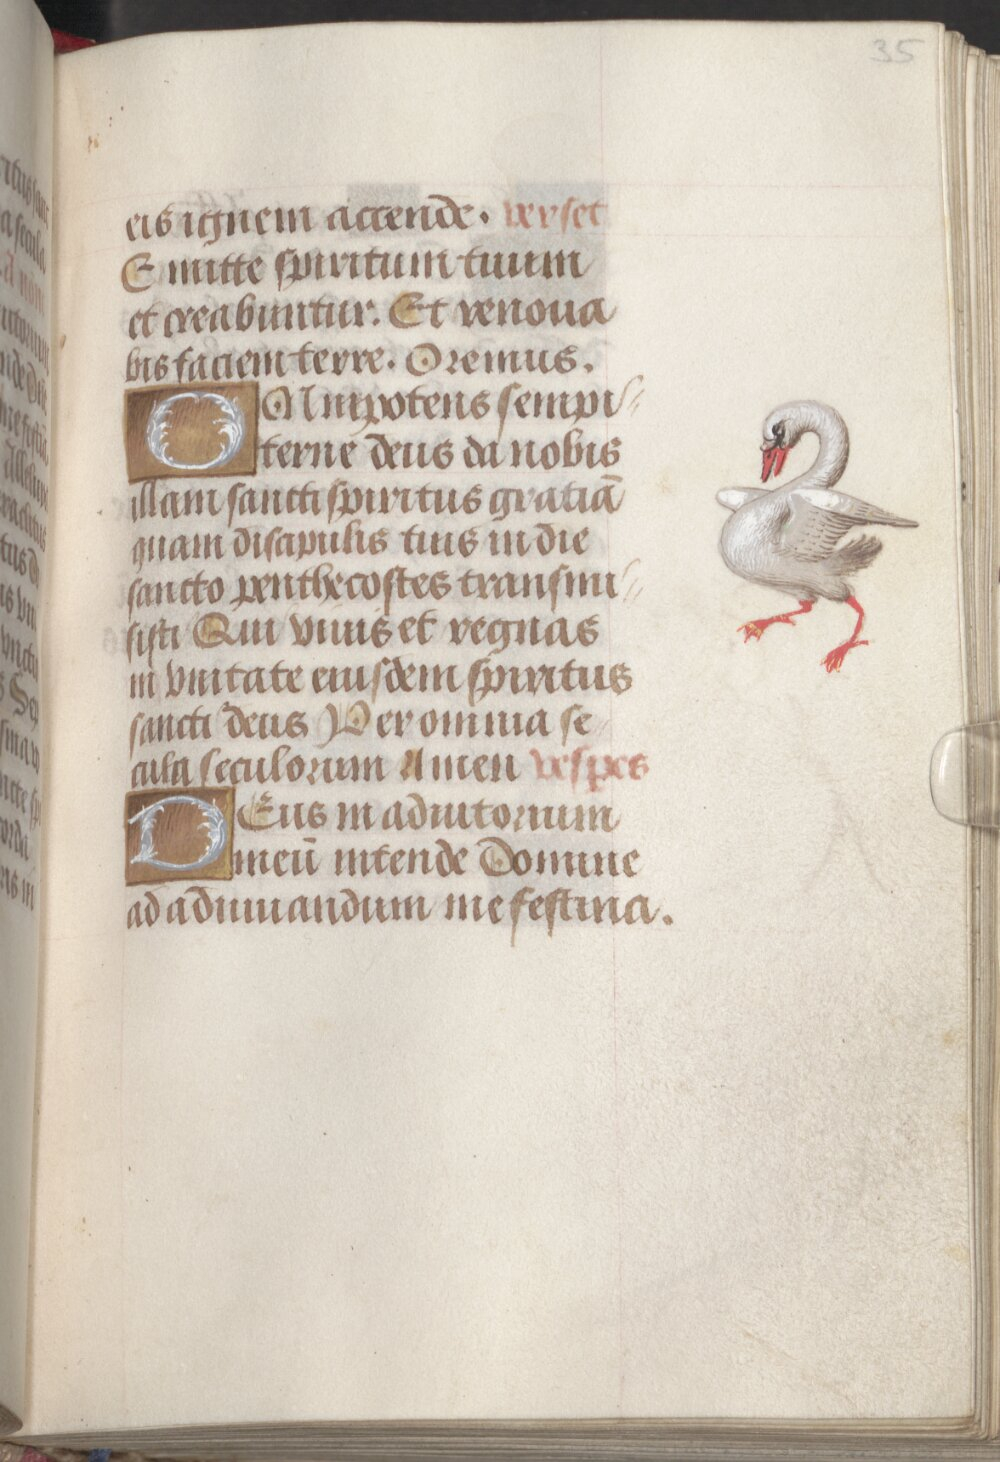 35
eis ignem accende. verset
Emitte spiritum tuum
et creabuntur. Et renoua
bis faciem terre. Oremus.
Omnipotens sempi
terne deus da nobis
illam sancti spiritus gratiā
quam discipulis tuis in die
sancto penthecostes transmi
sisti Qui viuis et regnas
in vnitate eiusdem spiritus
sancti deus Per omnia se
cula seculorum Amen vespes
Deus in adiutorium
meū intende Domine
ad adiuuandum me festina.